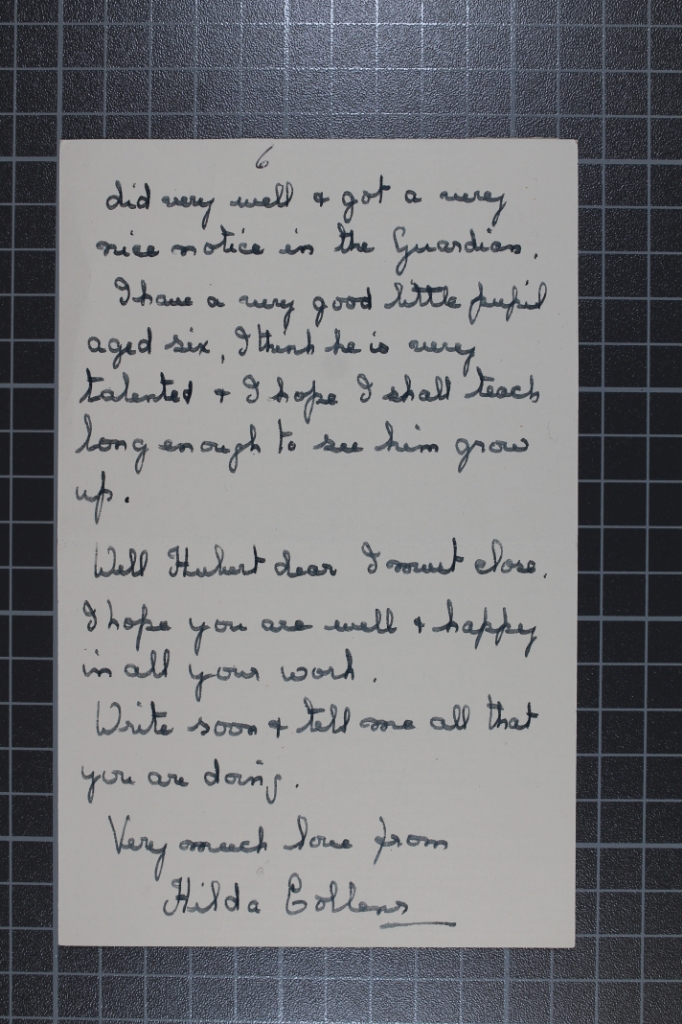 6
did very well & got a very
nice notice in the Guardian.
I have a very good little pupil
aged six, I think he is very
talented & I hope I shall teach
long enough to see him grow
up.
Well Hubert dear I must close.
I hope you are well & happy
in all your work.
Write soon & tell me all that
you are doing.
Very much love from
Hilda Collens